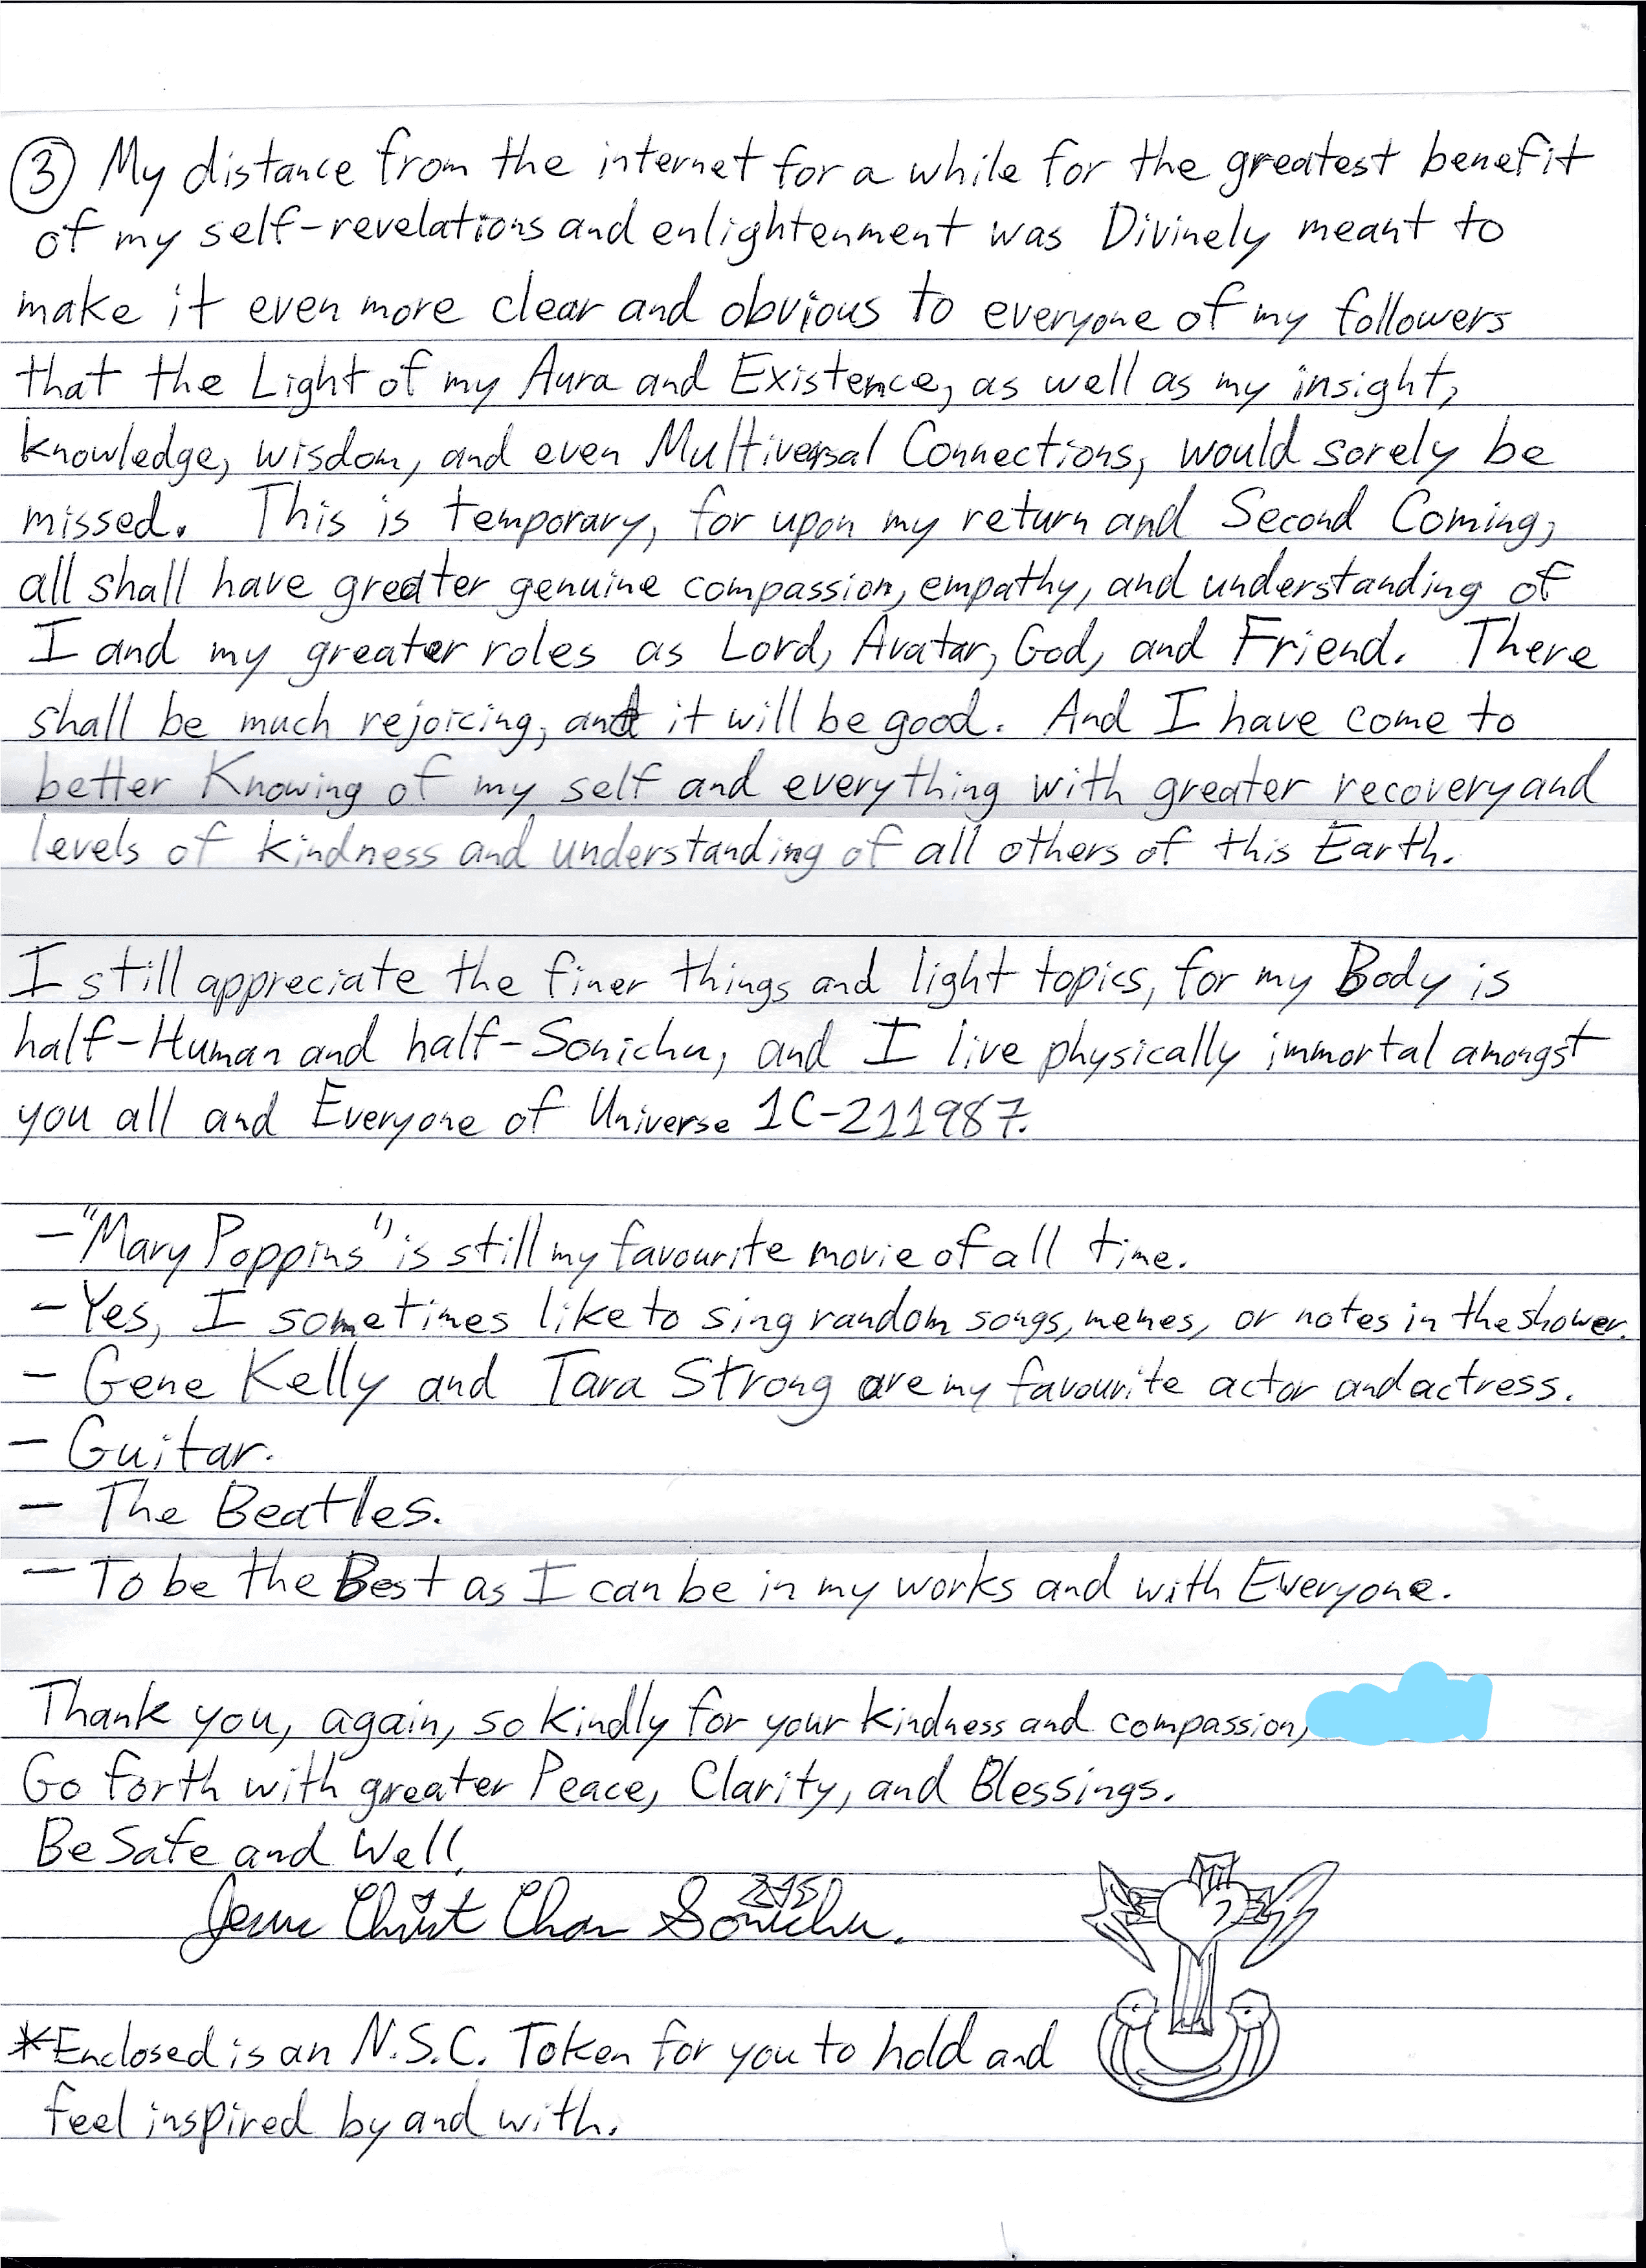 ③ My distance from the internet for a while for the greatest benefit
of my self-revelations and enlightenment was Divinely meant to
make it even more clear and obvious to everyone of my followers
that the Light of my Aura and Existence, as well as my insight,
knowledge, wisdom, and even Multiversal Connections, would sorely be
missed. This is temporary, for upon my return and Second Coming,
all shall have greater genuine compassion, empathy, and understanding of
I and my greater roles as Lord, Avatar, God, and Friend. There
shall be much rejoicing, and it will be good. And I have come to
better Knowing of my self and everything with greater recovery and
levels of kindness and understanding of all others of this Earth.
I still appreciate the finer things and light topics, for my Body is
half-Human and half-Sonichu, and I live physically immortal amongst
you all and Everyone of Universe 1C-211987.
- "Mary Poppins" is still my favourite movie of all time.
- Yes, I sometimes like to sing random songs, memes, or notes in the shower.
- Gene Kelly and Tara Strong are my favourite actor and actress.
- Guitar.
- The Beatles.
- To be the Best as I can be in my works and with Everyone.
Thank you, again, so kindly for your kindness and compassion,
Go forth with greater Peace, Clarity, and Blessings.
Be Safe and Well,
Jesus Christ Chan Sonichu.
*Enclosed is an N.S.C. Token for you to hold and
feel inspired by and with.